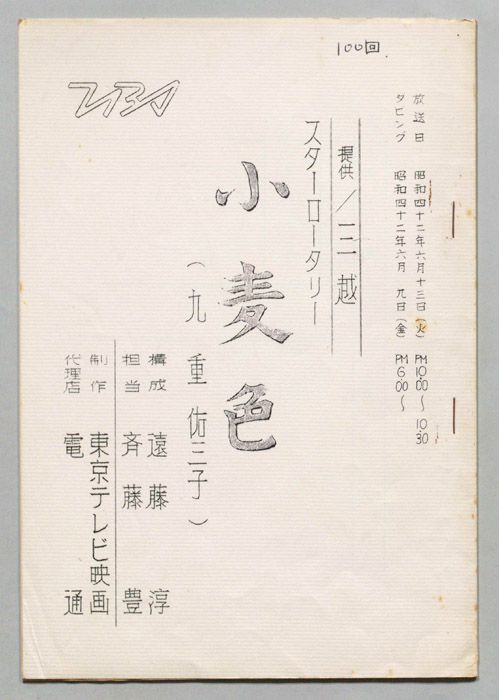 100回
放送日 昭和四十二年六月十三日(火) PM 10.00〜10.30
ダビング 昭和四十二年六月 九日(金) PM 6.00〜
提供/三越
スターロータリー
小麦色
(九重佑三子)
構成 遠藤 淳
担当 斉藤 豊
制作 東京テレビ映画
代理店 電通